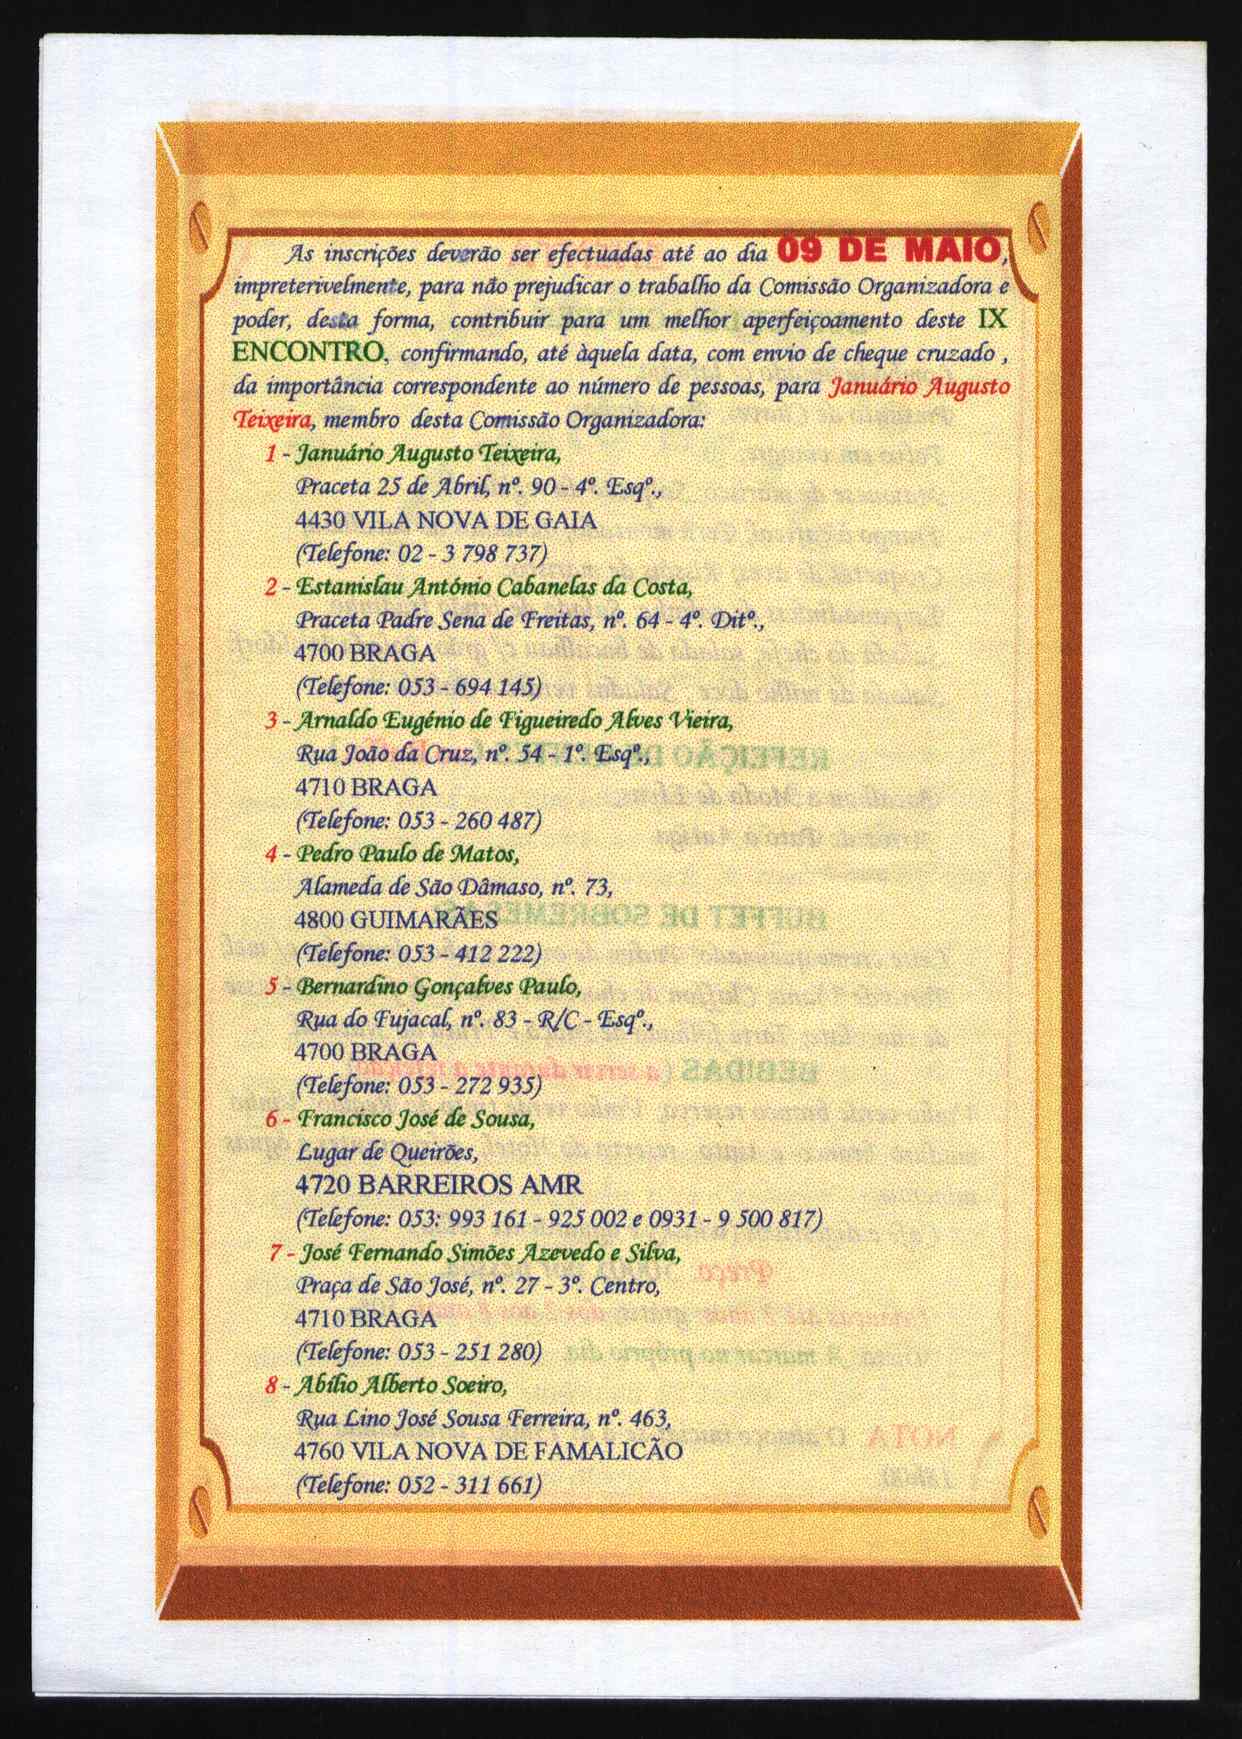 As inscrições deverão ser efectuadas até ao dia 09 DE MAIO,
impreterivelmente, para não prejudicar o trabalho da Comissão Organizadora e
poder, desta forma, contribuir para um melhor aperfeiçoamento deste IX
ENCONTRO, confirmando, até àquela data, com envio de cheque cruzado ,
da importância correspondente ao número de pessoas, para Januário Augusto
Teixeira, membro desta Comissão Organizadora:
1 - Januário Augusto Teixeira,
Praceta 25 de Abril, nº. 90 - 4º. Esqº.,
4430 VILA NOVA DE GAIA
(Telefone: 02 - 3 798 737)
2 - Estanislau António Cabanelas da Costa,
Praceta Padre Sena de Freitas, nº. 64 - 4º. Ditº.,
4700 BRAGA
(Telefone: 053 - 694 145)
3 - Arnaldo Eugénio de Figueiredo Alves Vieira,
Rua João da Cruz, nº. 54 - 1º. Esqº.,
4710 BRAGA
(Telefone: 053 - 260 487)
4 - Pedro Paulo de Matos,
Alameda de São Dâmaso, nº. 73,
4800 GUIMARÃES
(Telefone: 053 - 412 222)
5 - Bernardino Gonçalves Paulo,
Rua do Fujacal, nº. 83 - R/C - Esqº.,
4700 BRAGA
(Telefone: 053 - 272 935)
6 - Francisco José de Sousa,
Lugar de Queirões,
4720 BARREIROS AMR
(Telefone: 053: 993 161 - 925 002 e 0931 - 9 500 817)
7 - José Fernando Simões Azevedo e Silva,
Praça de São José, nº. 27 - 3º. Centro,
4710 BRAGA
(Telefone: 053 - 251 280)
8 - Abílio Alberto Soeiro,
Rua Lino José Sousa Ferreira, nº. 463,
4760 VILA NOVA DE FAMALICÃO
(Telefone: 052 - 311 661)